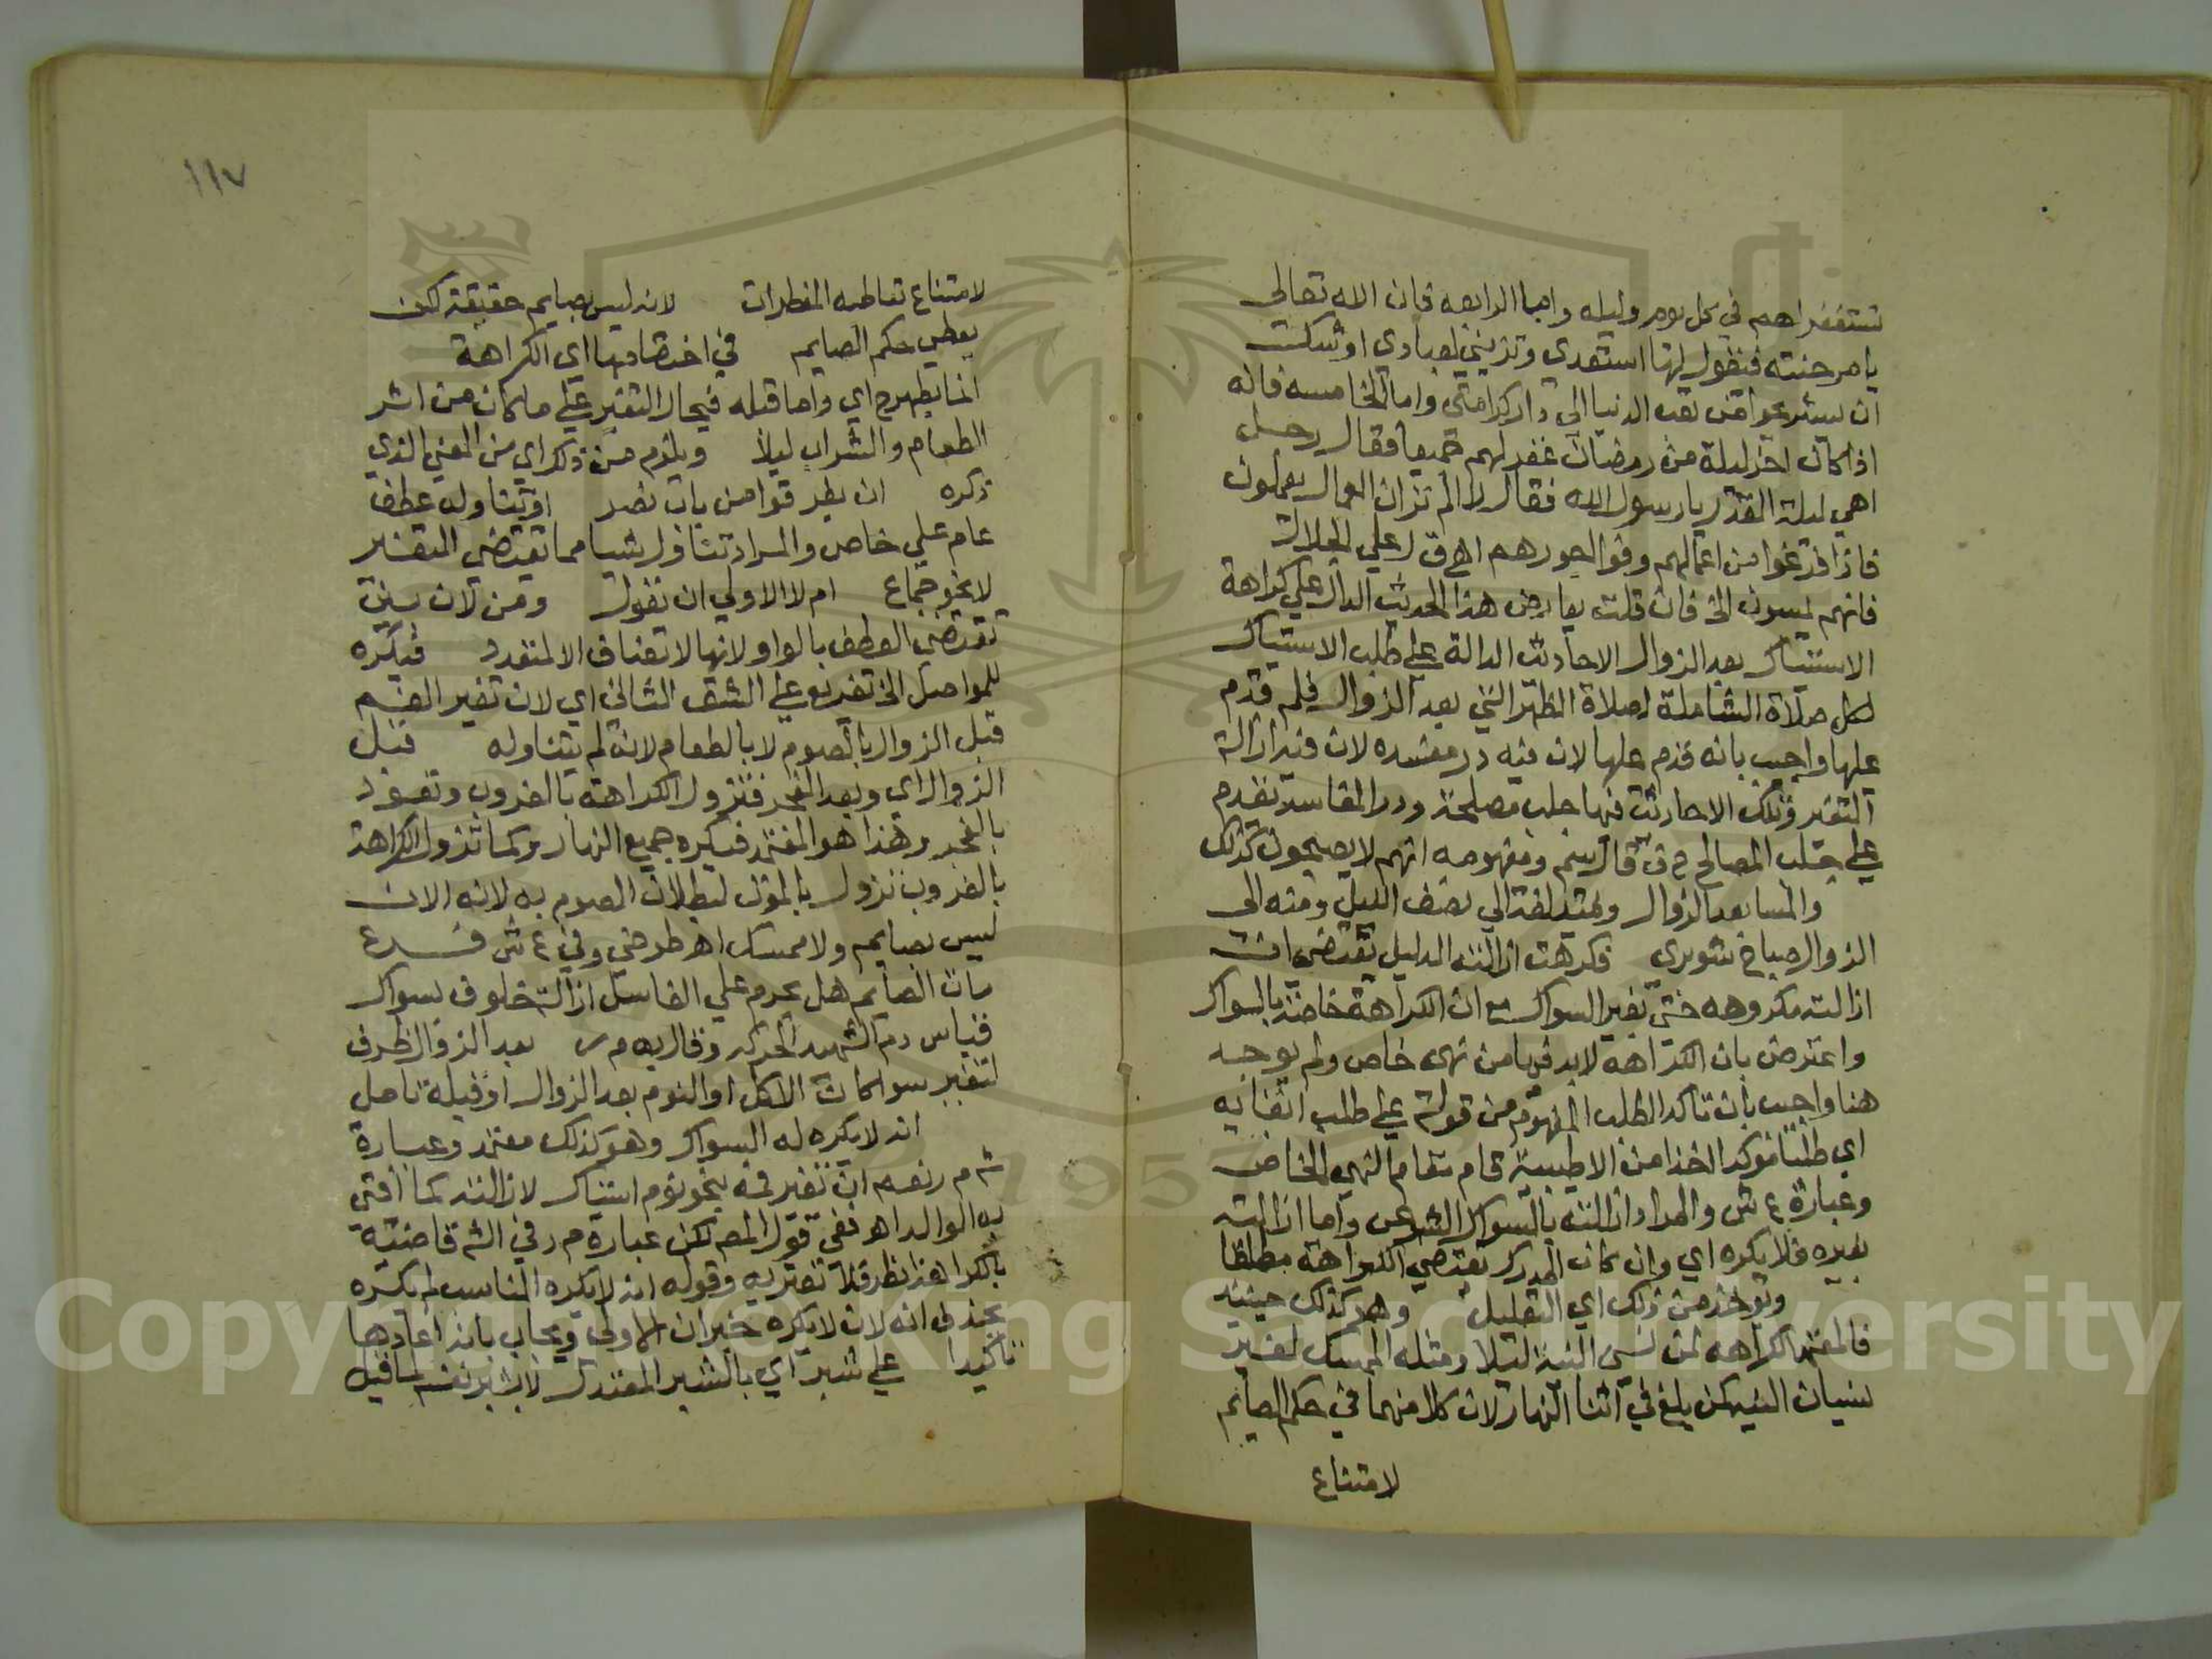 تستغفر لهم في كل يوم وليلة واما الرابعة فان الله تعالى
يامر جنته فيقول لها استعدي وتزيني لعبادي اوشكت
ان يستريحوا من تعب الدنيا الي دار كرامتي واما الخامسه فانه
اذا كان اخر ليلة من رمضان غفر لهم جميعا فقال رجل
اهي ليلة القدر يا رسول الله فقال لا الم تر ان العمال يعملون
فاذا فرغوا من اعمالهم وفوا اجورهم اهـ ق ل علي الجلال
فانهم يمسون الخ فان قلت يعارض هذا الحديث الدال علي كراهة
الاستياك بعد الزوال الاحاديث الدالة علي طلب الاستياك
لكل صلاة الشاملة لصلاة الظهر التي بعد الزوال فلم قدم
عليها واجيب بانه قدم عليها لان فيه درء مفسده لان فيه ازالة
التغير وتلك الاحاديث فيها جلب مصلحة ودرء المفاسد مقدم
علي جلب المصالح ح ف قال سم ومفهومه انهم لا يصبحون كذلك
والمسا بعد الزوال ويمتد لغة الي نصف الليل ومنه الى
الزوال صباح شوبري فكرهت ازالته الدليل يقتضي ان
ازالته مكروهه حتى بغير السواك مع ان الكراهة خاصة بالسواك
واعترض بان الكراهه لابد فيها من نهى خاص ولم يوجد
هنا واجيب بان تاكد الطلب المفهوم من قوله علي طلب ابقائه
اي طلبا موكدا اخذا من الاطيبية قام مقام النهي الخاص
وعبارة ع ش والمراد ازالته بالسواك الشرعي واما ازالته
بغيره فلا يكره اي وان كان المدرك يقتضي الكراهة مطلقا
ويوخذ من ذلك اي التعليل وهو كذلك حينئذ
فالمعتمد الكراهه لمن نسي النية ليلا ومثله الممسك لغير
نسيان النيه كمن بلغ في اثنا النهار لان كلا منهما في حكم الصائم
لامتناع
١١٧
لامتناع تعاطيه المفطرات لانه ليس بصايم حقيقة لكن
يعطي حكم الصايم في اختصاصها اي الكراهة
انما يظهر ح اي واما قبله فيحال التغير علي ما كان من اثر
الطعام والشراب ليلا ويلزم من ذلك اي من المعني الذي
ذكره ان يفرقوا من باب نصر او يتناول عطف
عام علي خاص والمراد تناول شيا مما يقتضي التغير
لا بنحو جماع ام لا الاولي ان يقول ومن لان بين
تقتضي العطف بالواو ولانها لا تضاف الا لمتعدد فيكره
للمواصل الخ تفريع علي الشق الثاني اي لان تغير الفم
قبل الزوال بالصوم لا بالطعام لانه لم يتناوله قبل
الزوال اي وبعد الفجر فتزول الكراهة بالغروب وتعود
بالفجر وهذا هو المعتمد فيكره جميع النهار وكما تزول الكراهة
بالغروب تزول بالموت لبطلان الصوم به لانه الان
ليس بصايم ولا ممسك اهـ طوخي وفي ع ش فرع
مات الصائم هل يحرم علي الغاسل ازالة خلوف بسواك
قياس دم الشهيد الحرمه وقال به م ر بعد الزوال ظرف
لتغير سوا كان الاكل او النوم بعد الزوال او قبله تامل
انه لا يكره له السواك وهو كذلك معتمد وعبارة
ش م ر نعم ان تغير فمه بنحو نوم استاك لازالته كما افتى
به الوالد اهـ ففي قول المص لكن عبارة م ر في الش قاضية
بالكراهة نظر فلا تغتر به وقوله انه لا يكره المناسب لم يكره
بحذف انه لان لا يكره خبر ان الاولى ويجاب بانه اعادها
تاكيدا علي شبر اي بالشبر المعتدل لا بشبر نفسه لما قيل